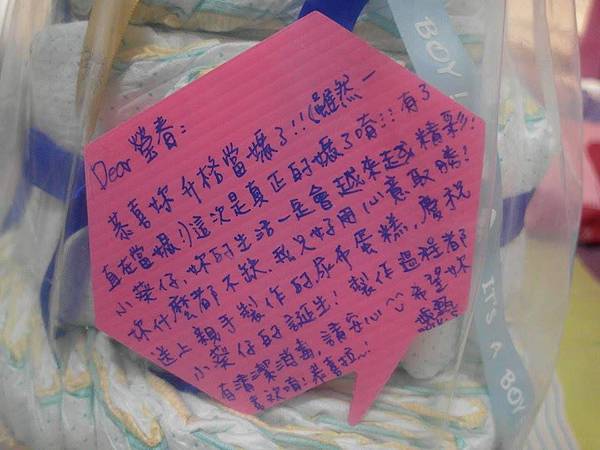 Dear 瑩青:
恭喜妳升格當媽了!!(雖然一
直在當媽!)這次是真正的媽了唷!!有了
小葵仔,妳的生活一定會越來越精彩!
妳什麼都不缺,我只好用心意取勝!
送上親手製作的尿布蛋糕,慶祝
小葵仔的誕生!製作過程都
有清潔消毒,請安心 希望妳
喜歡唷!恭喜
BOY!
IT'S A BOY